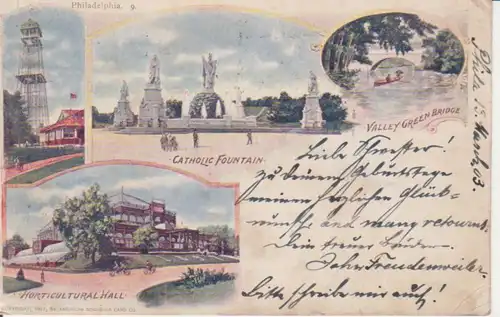 Philadelphia. 9.
CATHOLIC FOUNTAIN.
VALLEY GREEN BRIDGE
HORTICULTURAL HALL.
Phila 15 March, 03.
Liebe Schwester!
Zu deinem Geburtstage
meinen herzlichen Glück-
wunsch and many returns.
Dein treuer Bruder.
John Freudenweiler.
Bitte schreibe mir auch!